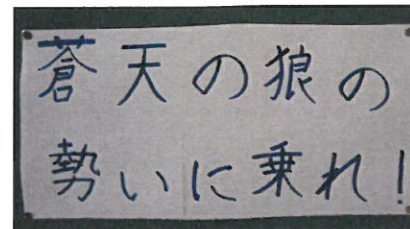 蒼天の狼の
勢いに乗れ!